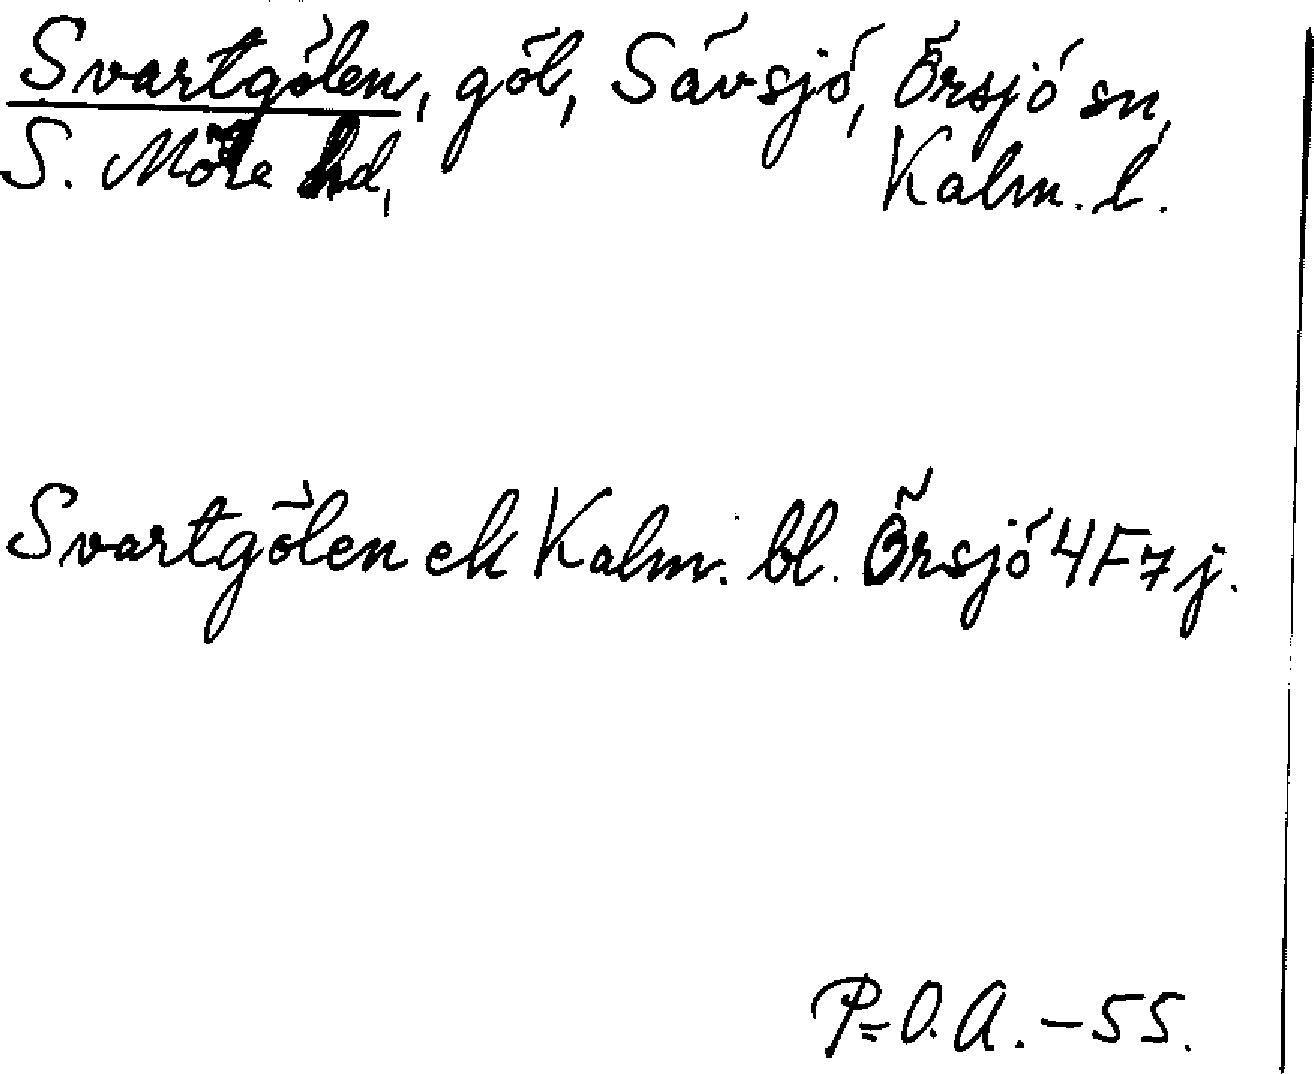 Svartgölen, göl, Sävsjö, Örsjö sn,
S. Möre hd, Kalm. l.
Svartgölen ek Kalm. bl. Örsjö 4F7j.
P=O.A.-55.